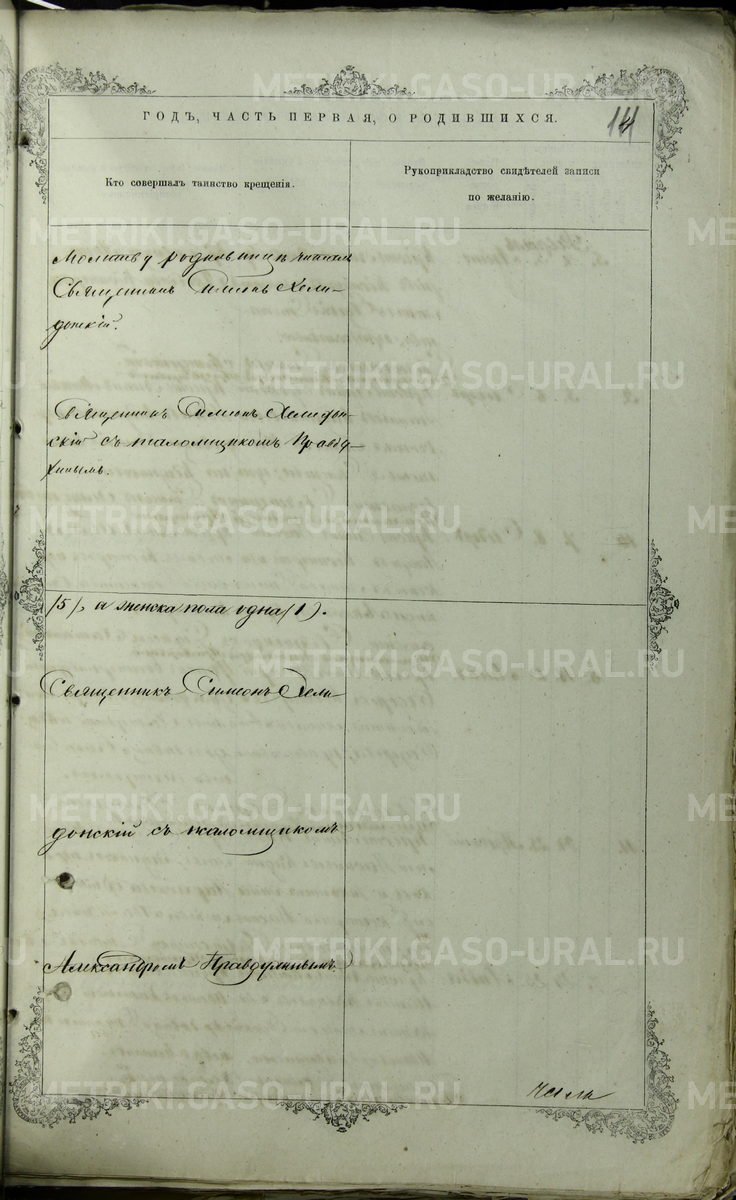 ГОДЪ, ЧАСТЬ ПЕРВАЯ, О РОДИВШИХСЯ.
14
Кто совершалъ таинство крещенія.
Рукоприкладство свидѣтелей записи
по желанію.
Молитву родильницѣ читалъ
Священникъ Симеонъ Хели-
донскій.
Священникъ Симеонъ Хелидон-
скій съ псаломщикомъ Правду-
хинымъ.
(5), а женска пола одна (1).
Священникъ Симеонъ Хели-
донскій съ псаломщикомъ
Александромъ Правдухинымъ.
METRIKI.GASO-URAL.RU